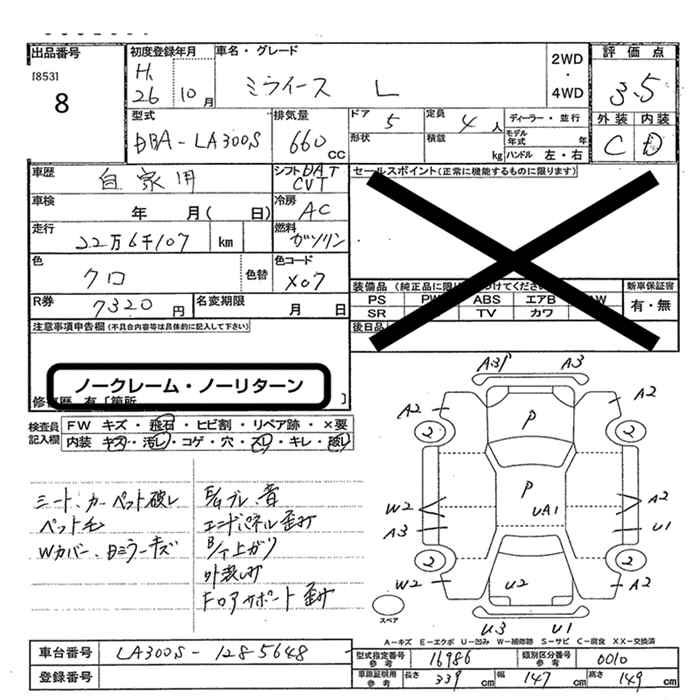 出品番号 初度登録年月 車名・グレード 2WD・4WD 評価点
[853] 8 H26 10月 ミライース L 3.5
型式 排気量 ドア 5 定員 4人 ディーラー・並行 外装 内装
DBA-LA300S 660cc 形状 積載 kg モデル年式 年 C D
ハンドル 左・右
車歴 自家用 シフト DAT CVT セールスポイント(正常に機能するものに限ります)
車検 年 月( 日) 冷房 AC
走行 22万6千107 km 燃料 ガソリン
色 クロ 色替 色コード X07
装備品 (純正品に限 けてください) 新車保証書
PS ABS エアB AW 有・無
SR TV カワ
R券 7320円 名変期限 月 日
後日品
注意事項申告欄(不具合内容等は具体的に記入して下さい)
ノークレーム・ノーリターン
修復歴 有 [箇所 ]
検査員記入欄 FW キズ・飛石・ヒビ割・リペア跡・×要
内装 キズ・汚レ・コゲ・穴・スレ・キレ・破レ
シート、カーペット破レ
ペット毛
Wカバー、Dミラーキズ
E/gブレ 音
エンドパネル歪み
B/F上ガリ
フロアサポート 歪み
A31 A3
A2 A2
2 P 2
P
W2 UA1 A2
A3 U1
2 2
W2 U2 A2
スペア
U3 U1
A-キズ E-エクボ U-凹み W-補修跡 S-サビ C-腐食 XX-交換済
車台番号 LA300S-1285648
登録番号
型式指定番号 参考 16986 類別区分番号 参考 0010
車庫証明用 参考 長さ 339cm 幅 147cm 高さ 149cm